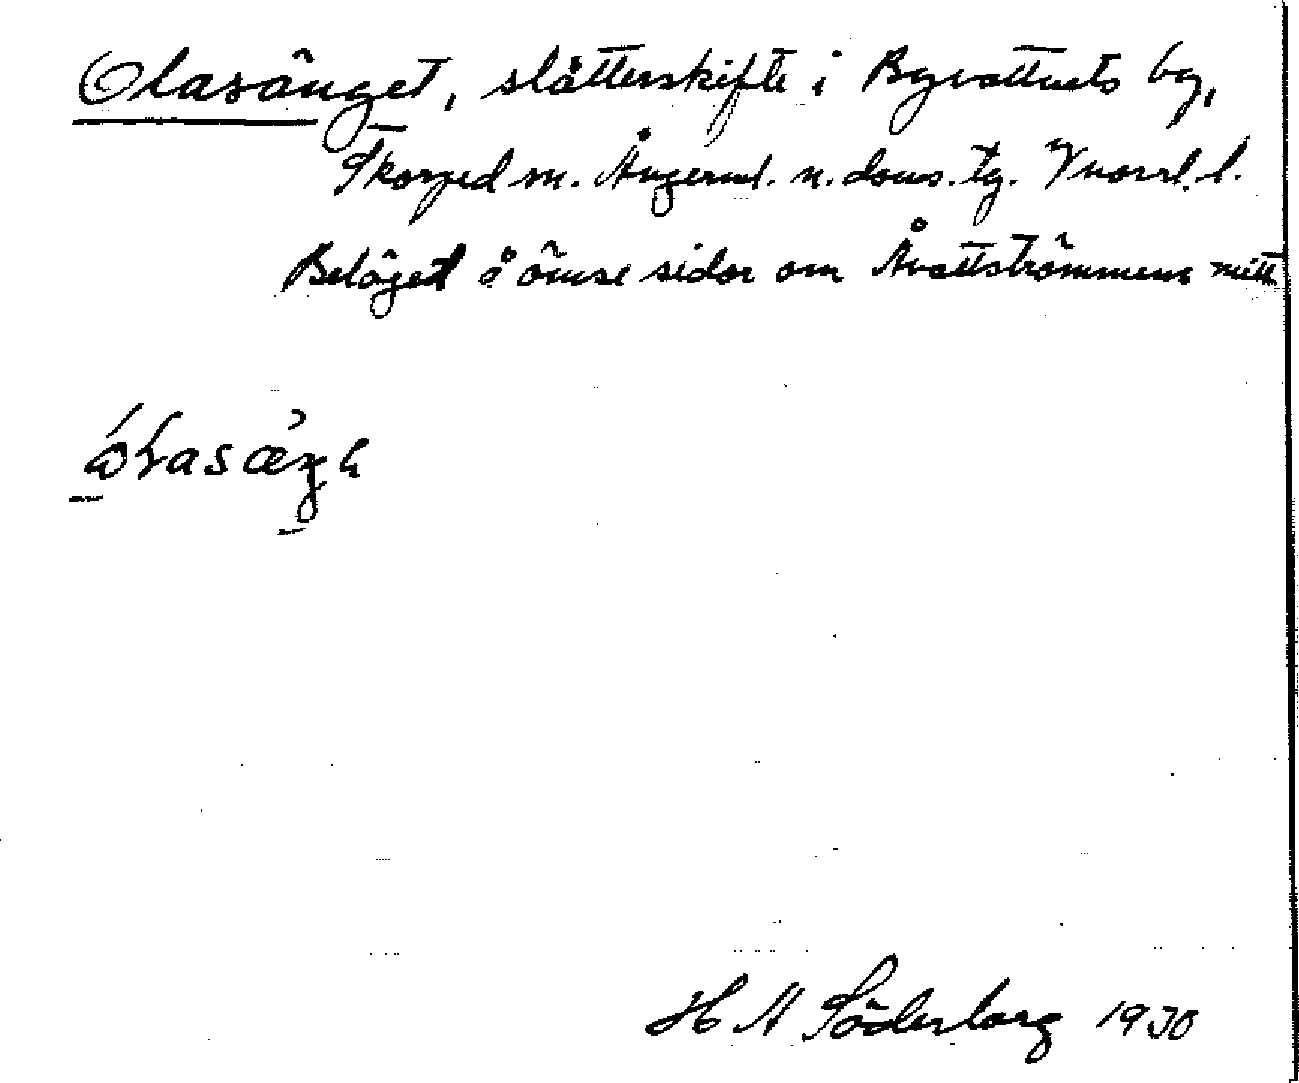 Olasänget, slåtterskifte i Byvattnets by,
Skorped sn. Ångerml. n. doms. tg. Vnorrl. l.
Beläget å ömse sidor om Åvattströmmens mitt
H A Söderborg 1930